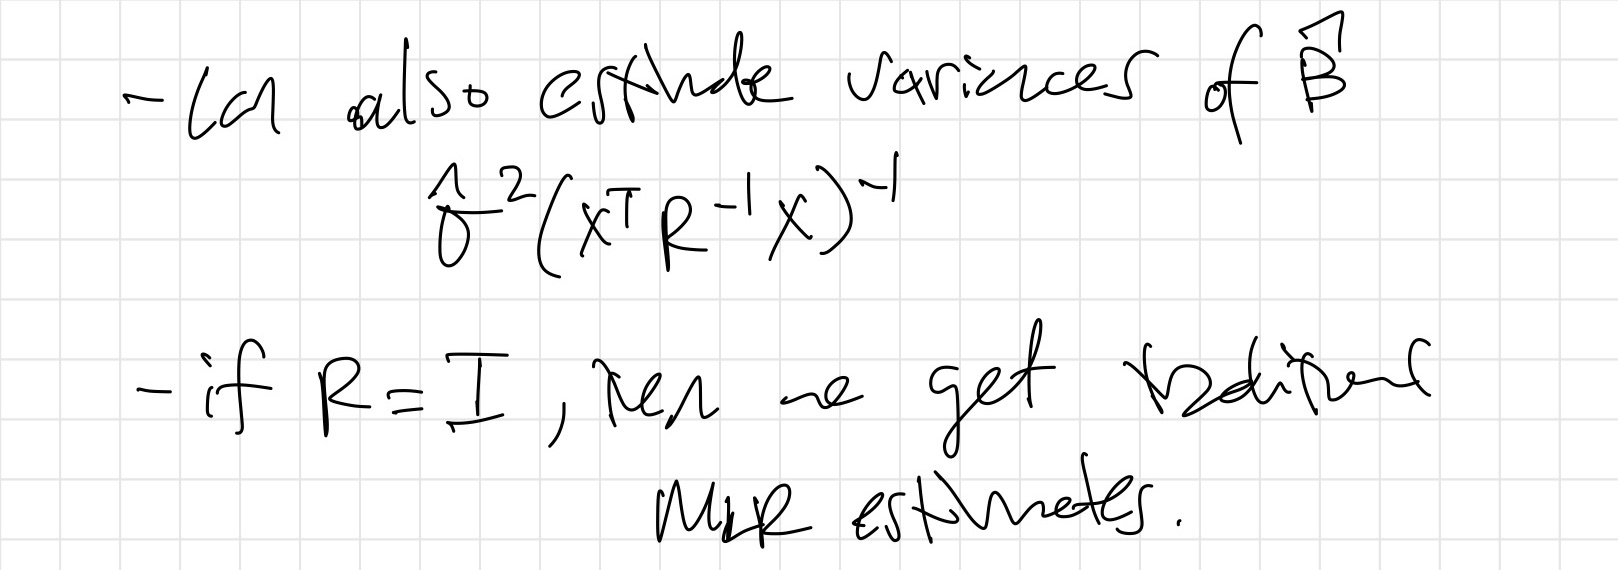 - Can also estimate variances of B̂
σ̂²(XᵀR⁻¹X)⁻¹
- if R = I, then we get traditional
MLR estimates.